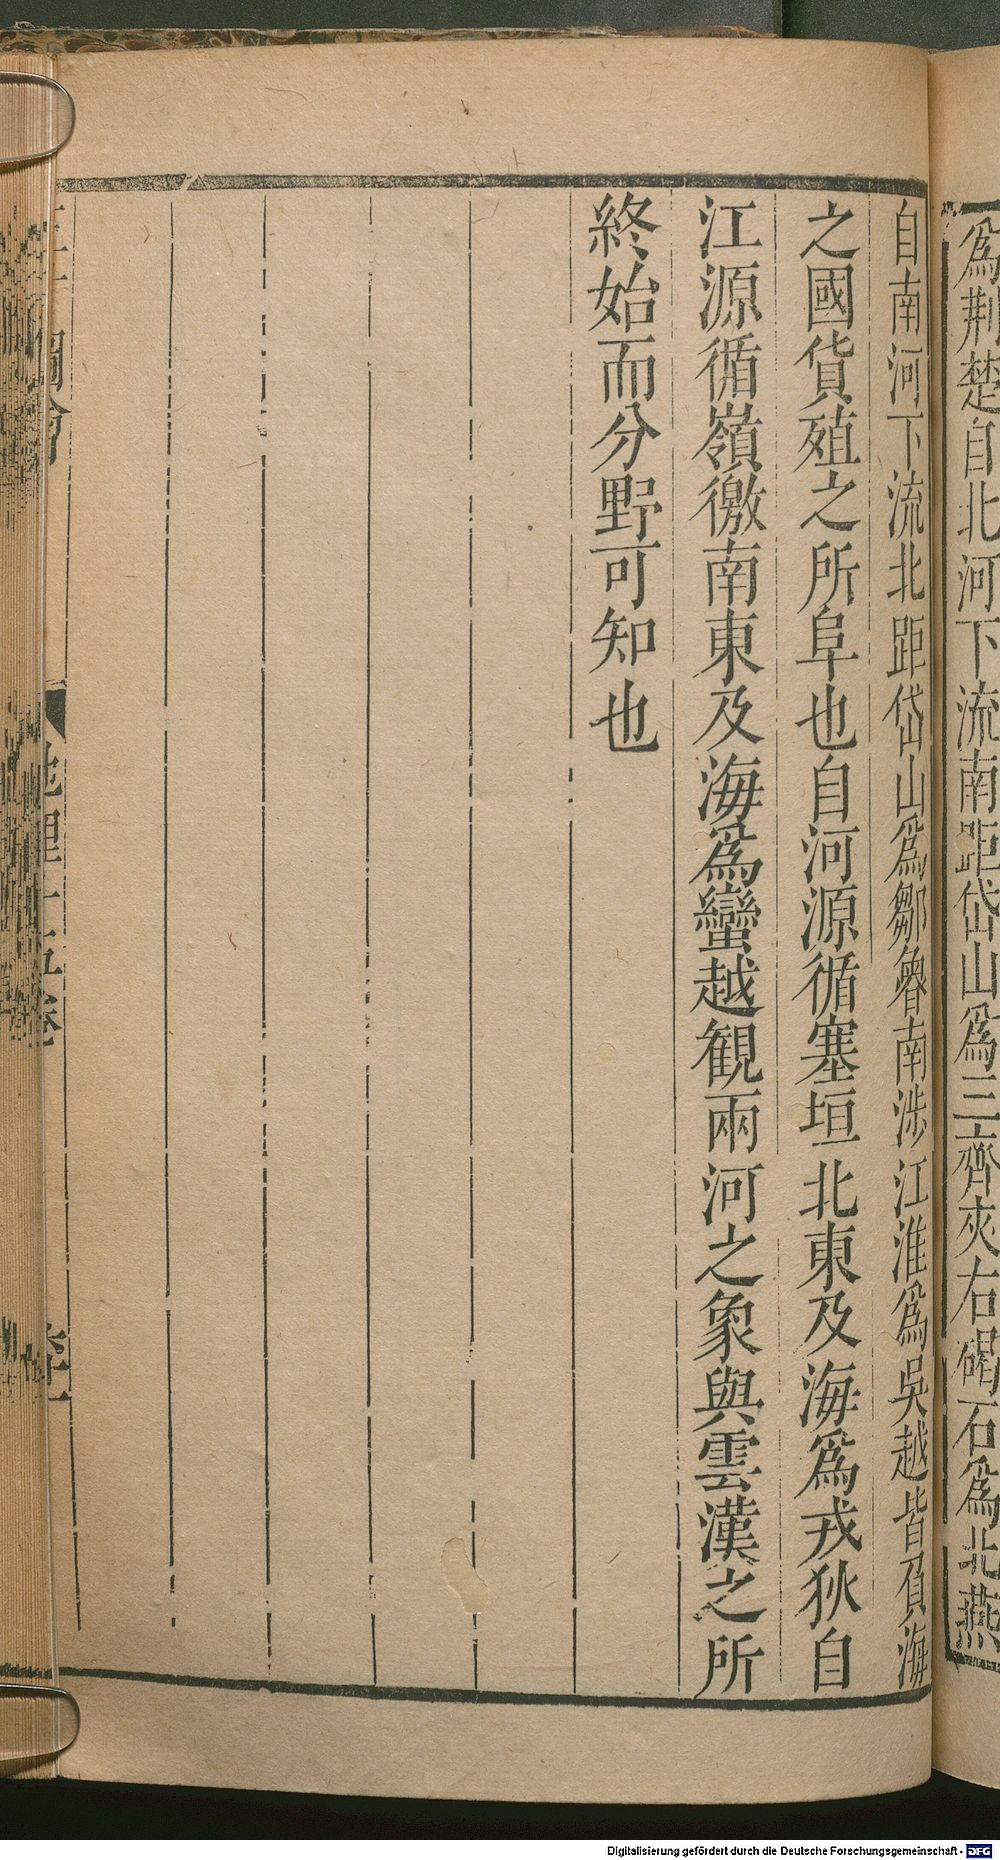 為荆楚自北河下流南距岱山為三齊夾右碣石為北燕
自南河下流北距岱山為鄒魯南涉江淮為吳越皆負海
之國貨殖之所阜也自河源循塞垣北東及海為戎狄自
江源循嶺徼南東及海為蠻越觀兩河之象與雲漢之所
終始而分野可知也
地理十五卷
Digitalisierung gefördert durch die Deutsche Forschungsgemeinschaft - DFG